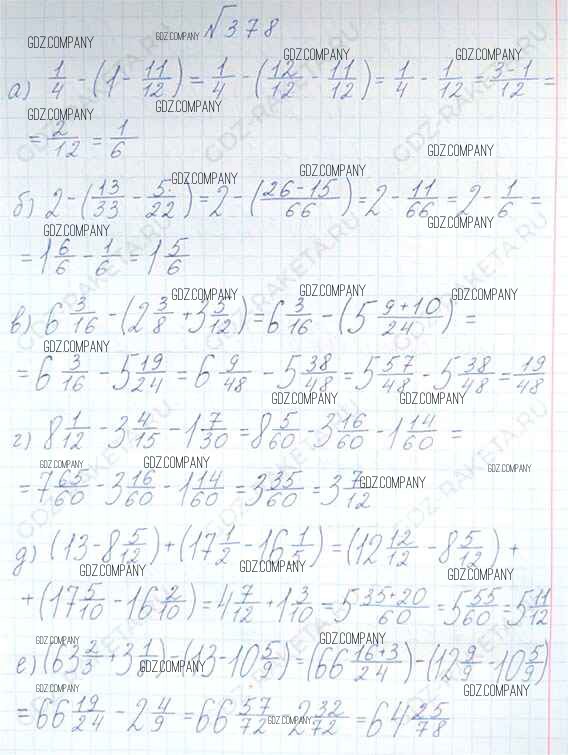 №378
а) 1/4 - (1 - 11/12) = 1/4 - (12/12 - 11/12) = 1/4 - 1/12 = 3-1/12 =
= 2/12 = 1/6
б) 2 - (13/33 - 5/22) = 2 - (26-15/66) = 2 - 11/66 = 2 - 1/6 =
= 1 6/6 - 1/6 = 1 5/6
в) 6 3/16 - (2 3/8 + 3 5/12) = 6 3/16 - (5 9+10/24) =
= 6 3/16 - 5 19/24 = 6 9/48 - 5 38/48 = 5 57/48 - 5 38/48 = 19/48
г) 8 1/12 - 3 4/15 - 1 7/30 = 8 5/60 - 3 16/60 - 1 14/60 =
= 7 65/60 - 3 16/60 - 1 14/60 = 3 35/60 = 3 7/12
д) (13 - 8 5/12) + (17 1/2 - 16 1/5) = (12 12/12 - 8 5/12) +
+ (17 5/10 - 16 2/10) = 4 7/12 + 1 3/10 = 5 35+20/60 = 5 55/60 = 5 11/12
е) (63 2/3 + 3 1/8) - (13 - 10 5/9) = (66 16+3/24) - (12 9/9 - 10 5/9)
= 66 19/24 - 2 4/9 = 66 57/72 - 2 32/72 = 64 25/78
GDZ.COMPANY
GDZ-RAKETA.RU